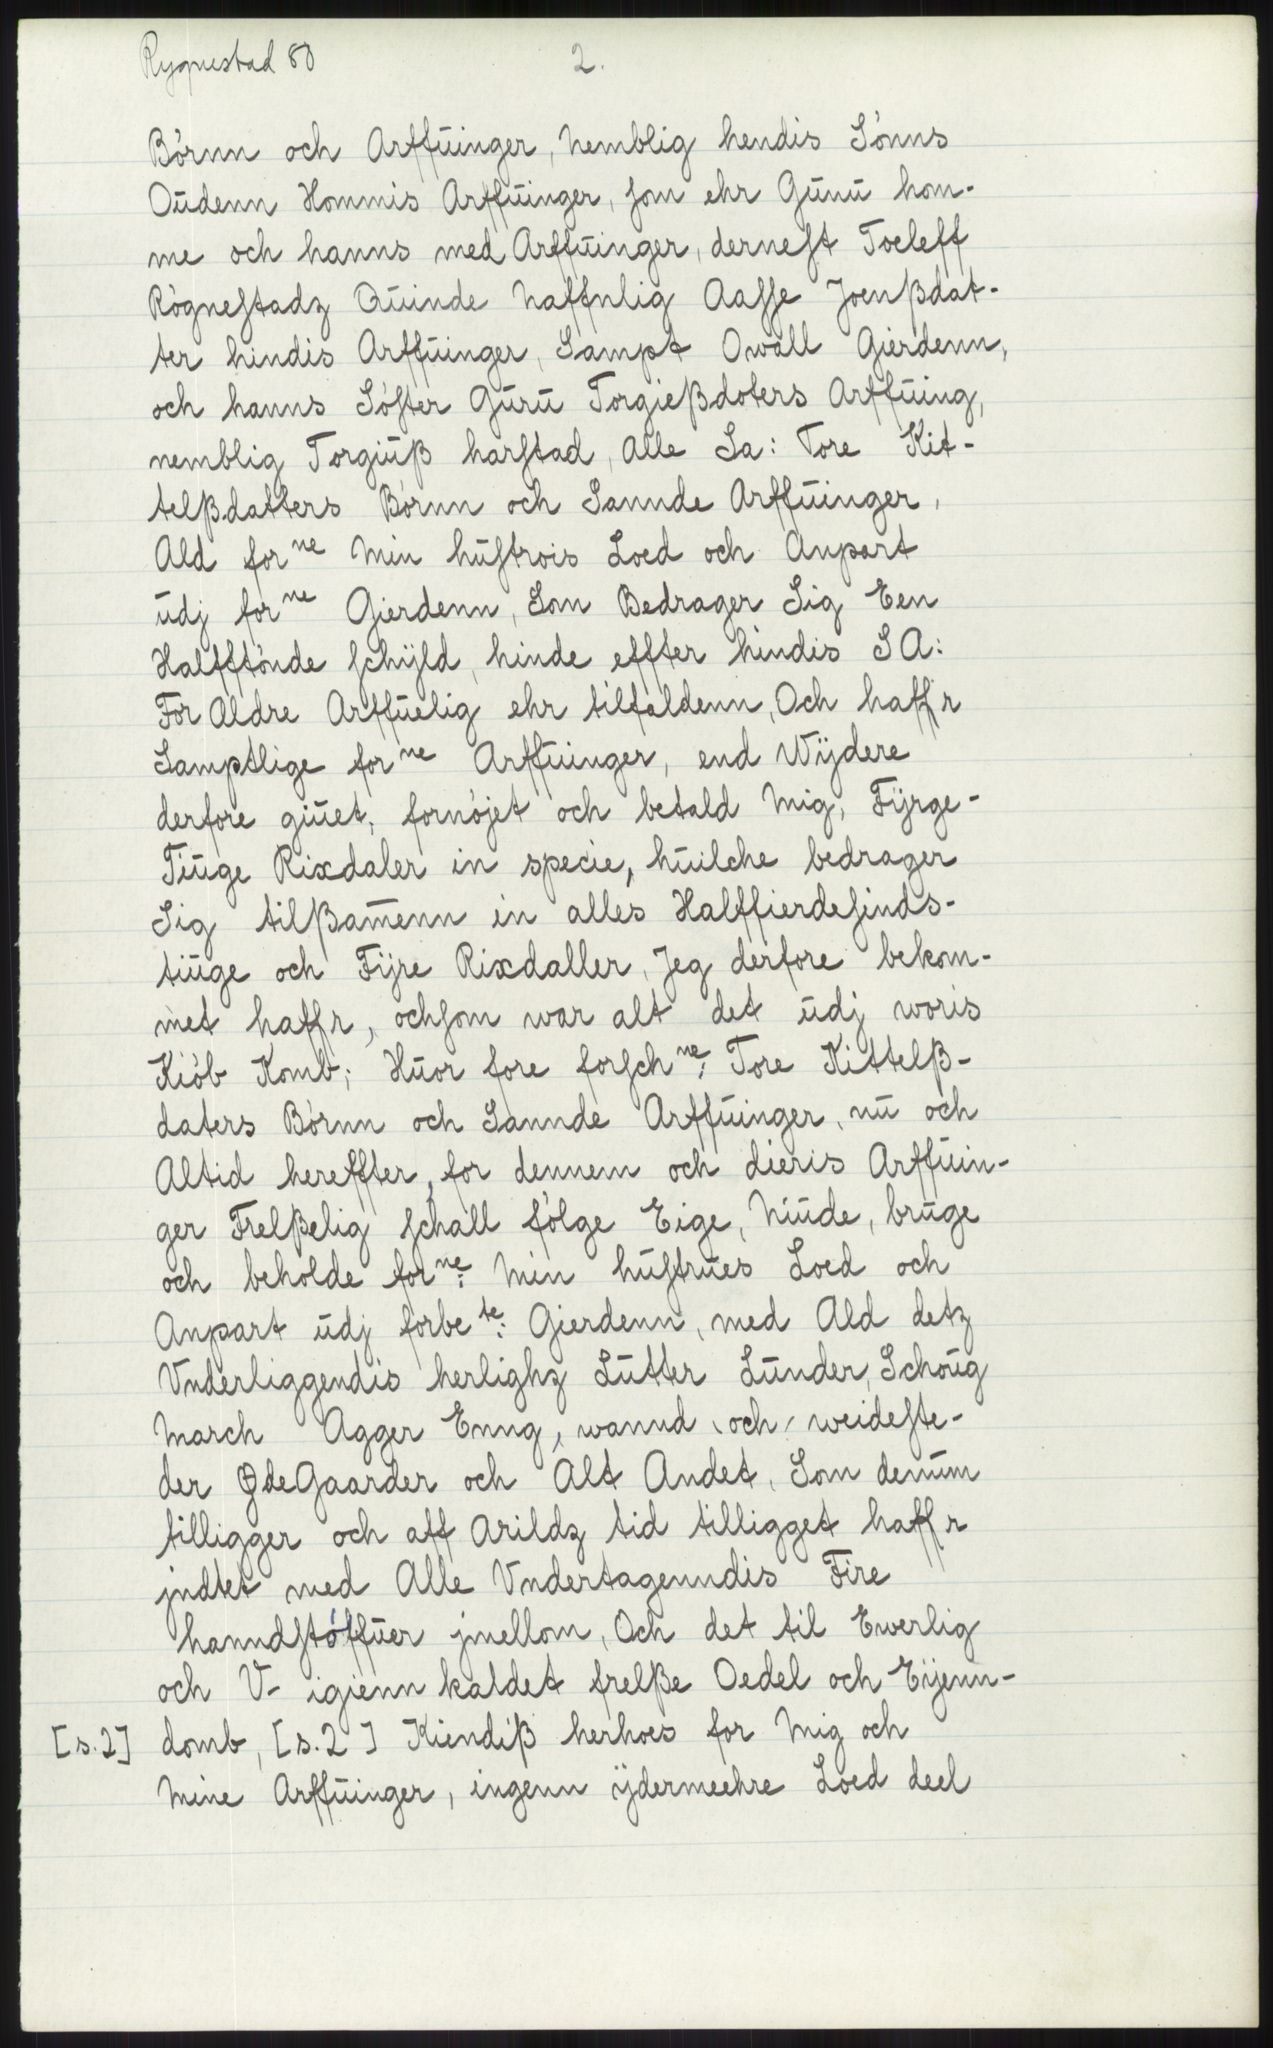 Rygnestad 80
2.
Börnn och Arffūinger, Nemblig hendis Sönns
Oūdenn Hommis Arffūinger, som ehr Gūnū hom-
me och hanns med Arffūinger, dernest Toeleff
Rögnestadz Qūinde Naffnlig Aasse Joenßdat-
ter hindis Arffūinger, Sampt Owall Gierdenn,
och hanns Söster Gūrū Torgießdoters Arffūing,
nemblig Torgiūß harstad, Alle Sa: Tore Kit-
telßdatters Börnn och Sannde Arffūinger,
Ald forne Min hūstrois Loed och Anpart
ūdj forne Gierdenn, Som Bedrager Sig Een
Halfftönde schÿld, hinde effter hindis SA:
For Aldre Arffūelig ehr tilfaldenn, Och haffr
Samptlige forne Arffūinger, end Wÿdere
derfore giūet, fornöjet och betald Mig, Fÿrge-
Tiūge Rixdaler in specie, hūilche bedrager
Sig tilßam̄enn in alles Halffierdesinds-
tiūge och Fÿre Rixdaller, Jeg derfore bekom-
met haffr, ochsom war alt det ūdj woris
Kiöb Komb; Hūor fore forschne: Tore Kittelß-
daters Börnn och Sannde Arffūinger, nū och
Altid hereffter, for dennem och dieris Arffūin-
ger Frelßelig schall fölge Eige, Niūde, brūge
och beholde forne: Min hūstrūes Loed och
Anpart ūdj forbete: Gierdenn, med Ald detz
Vnderliggendis herlighz Lūtter Lūnder, Schoūg
March Agger Enng, wannd och weideste-
der ØdeGaarder och Alt Andet, Som denūm
tilligger och aff Arildz tid tilligget haffr
jndtet med Alle Vndertagenndis Fire
hanndstöffūer jmellom, Och det til Ewerlig
och V- igienn kaldet frelße Oedel och Eÿenn-
[s.2] domb, [s.2] Kiendiß herhoes for Mig och
Mine Arffūinger, ingenn ÿdermeehre Loed deel